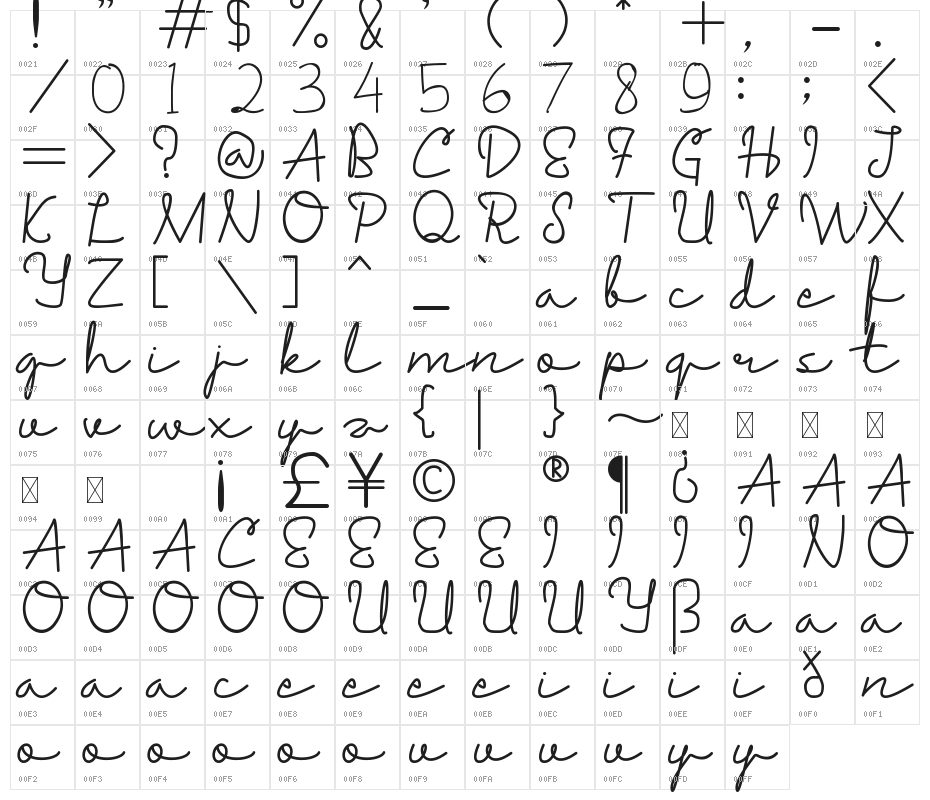 ! " # $ % & ' ( ) * + , - .
0021 0022 0023 0024 0025 0026 0027 0028 0029 002A 002B 002C 002D 002E
/ 0 1 2 3 4 5 6 7 8 9 : ; <
002F 0030 0031 0032 0033 0034 0035 0036 0037 0038 0039 003A 003B 003C
= > ? @ A B C D E F G H I J
003D 003E 003F 0040 0041 0042 0043 0044 0045 0046 0047 0048 0049 004A
K L M N O P Q R S T U V W X
004B 004C 004D 004E 004F 0050 0051 0052 0053 0054 0055 0056 0057 0058
Y Z [ \ ] ^ _ ` a b c d e f
0059 005A 005B 005C 005D 005E 005F 0060 0061 0062 0063 0064 0065 0066
g h i j k l m n o p q r s t
0067 0068 0069 006A 006B 006C 006D 006E 006F 0070 0071 0072 0073 0074
u v w x y z { | } ~
0075 0076 0077 0078 0079 007A 007B 007C 007D 007E 0091 0092 0093
¡ £ ¥ © ® ¶ ¿ A A A
0094 0099 00A0 00A1 00A3 00A5 00A9 00AE 00B6 00BF 00C0 00C1 00C2
A A A C E E E E I I I I N O
00C3 00C4 00C5 00C7 00C8 00C9 00CA 00CB 00CC 00CD 00CE 00CF 00D1 00D2
O O O O O U U U U Y ß a a a
00D3 00D4 00D5 00D6 00D8 00D9 00DA 00DB 00DC 00DD 00DF 00E0 00E1 00E2
a a a c e e e e i i i i ð n
00E3 00E4 00E5 00E7 00E8 00E9 00EA 00EB 00EC 00ED 00EE 00EF 00F0 00F1
o o o o o o u u u u y y
00F2 00F3 00F4 00F5 00F6 00F8 00F9 00FA 00FB 00FC 00FD 00FF